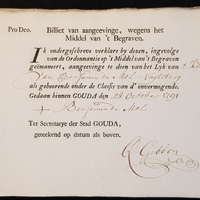 Pro Deo. Billiet van aangeevinge, wegens het
Middel van 't Begraven.
Ik ondergeschreve verklare by deezen, ingevolge
van de Ordonnantie op 't Middel van 't Begraven
geëmaneert, aangeevinge te doen van het Lyk van
van Benjamin de Mol
als gehoorende onder de Classis van d'onvermogende.
Gedaan binnen GOUDA den 28 October 1791
+ Benjamin de Mol
Ter Secretarye der Stad GOUDA,
geteekend op datum als boven.